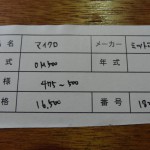 品名 マイクロ メーカー ミツトヨ
式 OM500 年式
様 475-500
格 16,500 番号 182